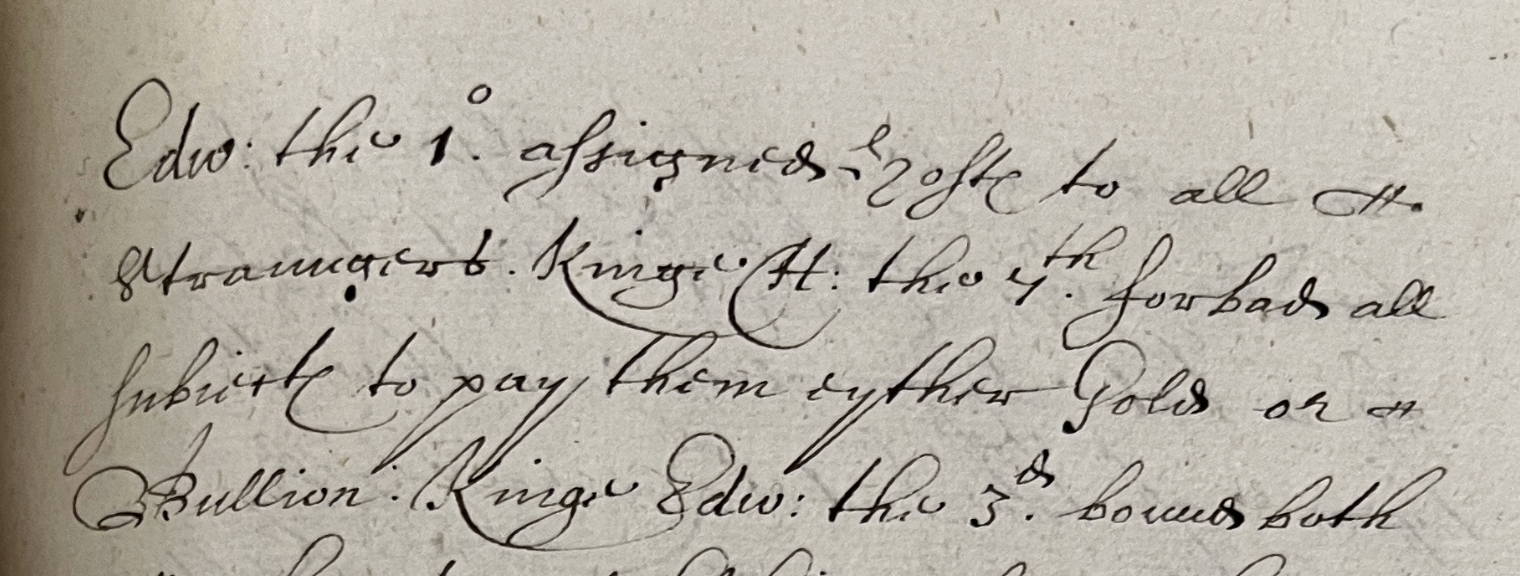 Edw: the 1o. assigned Hostes to all
Straungers. Kinge H: the 7th. forbad all
subiectes to pay them eyther Gold or
Bullion. Kinge Edw: the 3d. bound both